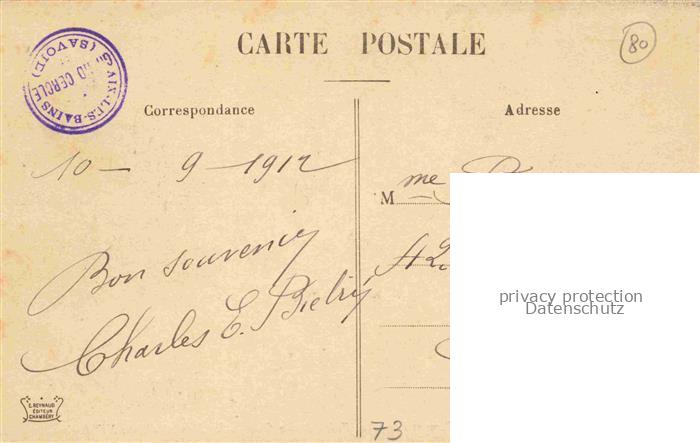 CARTE POSTALE
80
AIX-LES-BAINS
(SAVOIE)
CERCLE
Correspondance
Adresse
10 — 9 — 1912
M me
Bon souvenir
42
Charles E.
privacy protection
Datenschutz
E. REYNAUD
ÉDITEUR
CHAMBÉRY
73